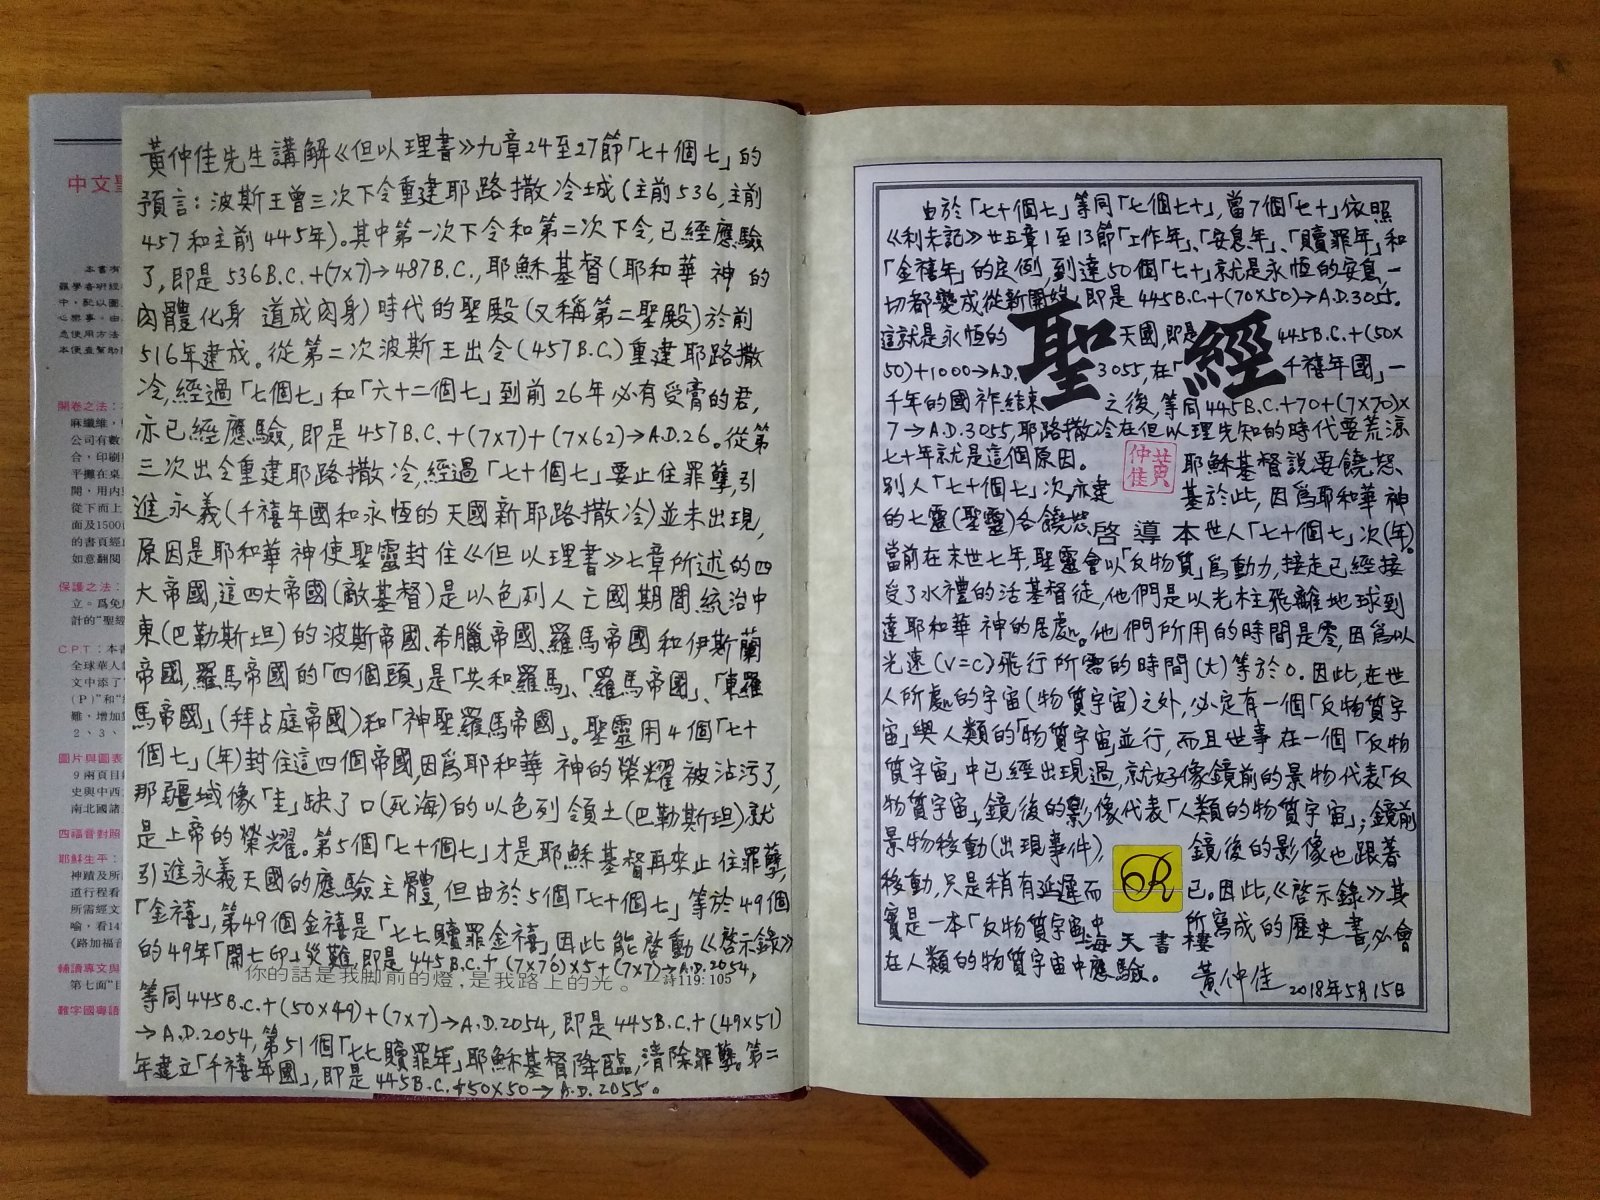 黃仲佳先生講解《但以理書》九章24至27節「七十個七」的
預言：波斯王曾三次下令重建耶路撒冷城(主前536,主前
457和主前445年)。其中第一次下令和第二次下令,已經應驗
了,即是536B.C.+(7×7)→487B.C.,耶穌基督(耶和華 神的
肉體化身 道成肉身)時代的聖殿(又稱第二聖殿)於前
516年建成。從第二次波斯王出令(457B.C.)重建耶路撒
冷,經過「七個七」和「六十二個七」到前26年必有受膏的君,
亦已經應驗,即是457B.C.+(7×7)+(7×62)→A.D.26。從第
三次出令重建耶路撒冷,經過「七十個七」要止住罪孽,引
進永義(千禧年國和永恆的天國新耶路撒冷)並未出現,
原因是耶和華 神使聖靈封住《但以理書》七章所述的四
大帝國,這四大帝國(敵基督)是以色列人亡國期間統治中
東(巴勒斯坦)的波斯帝國、希臘帝國、羅馬帝國和伊斯蘭
帝國,羅馬帝國的「四個頭」是「共和羅馬」、「羅馬帝國」、「東羅
馬帝國」(拜占庭帝國)和「神聖羅馬帝國」。聖靈用4個「七十
個七」(年)封住這四個帝國,因為耶和華 神的榮耀被沾污了,
那疆域像「圭」缺了口(死海)的以色列領土(巴勒斯坦)就
是上帝的榮耀。第5個「七十個七」才是耶穌基督再來止住罪孽,
引進永義天國的應驗主體,但由於5個「七十個七」等於49個
「金禧」,第49個金禧是「七七贖罪金禧」因此能啓動《啓示錄》
的49年「開七印」災難,即是445B.C.+(7×70)×5+(7×7)→A.D.2054,
你的話是我腳前的燈,是我路上的光。 詩119:105
等同445B.C.+(50×49)+(7×7)→A.D.2054,即是445B.C.+(49×51)
→A.D.2054,第51個「七七贖罪年」耶穌基督降臨,清除罪孽。第二
年建立「千禧年國」,即是445B.C.+50×50→A.D.2055。
由於「七十個七」等同「七個七十」,當7個「七十」依照
《利未記》廿五章1至13節「工作年」、「安息年」、「贖罪年」和
「金禧年」的定例,到達50個「七十」就是永恆的安息,一
切都變成從新開始,即是445B.C.+(70×50)→A.D.3055。
這就是永恆的 天國,即是445B.C.+(50×
50)+1000→A.D.3055,在「千禧年國」一
聖經
千年的國祚結束之後,等同445B.C.+70+(7×70)×
7→A.D.3055,耶路撒冷在但以理先知的時代要荒涼
七十年就是這個原因。 耶穌基督說要饒恕
黃仲佳
別人「七十個七」次,亦建基於此,因為耶和華 神
的七靈(聖靈)各饒恕世人「七十個七」次(年)。
啓導本
當前在末世七年,聖靈會以「反物質」為動力,接走已經接
受了水禮的活基督徒,他們是以光柱飛離地球到
達耶和華 神的居處。他們所用的時間是零,因為以
光速(V=C)飛行所需的時間(t)等於0。因此,在世
人所處的宇宙(物質宇宙)之外,必定有一個「反物質宇
宙」與人類的「物質宇宙」並行,而且世事在一個「反物
質宇宙」中已經出現過,就好像鏡前的景物代表「反
物質宇宙」,鏡後的影像代表「人類的物質宇宙」;鏡前
景物移動(出現事件),鏡後的影像也跟著
移動,只是稍有延遲而已。因此,《啓示錄》其
實是一本「反物質宇宙中所寫成的歷史書,必會
海天書樓
在人類的物質宇宙中應驗。 黃仲佳 2018年5月15日
開卷之法：
保護之法：
CPT：本書
圖片與圖表
四福音對照
耶穌生平：
輔讀專文與
難字國粵語